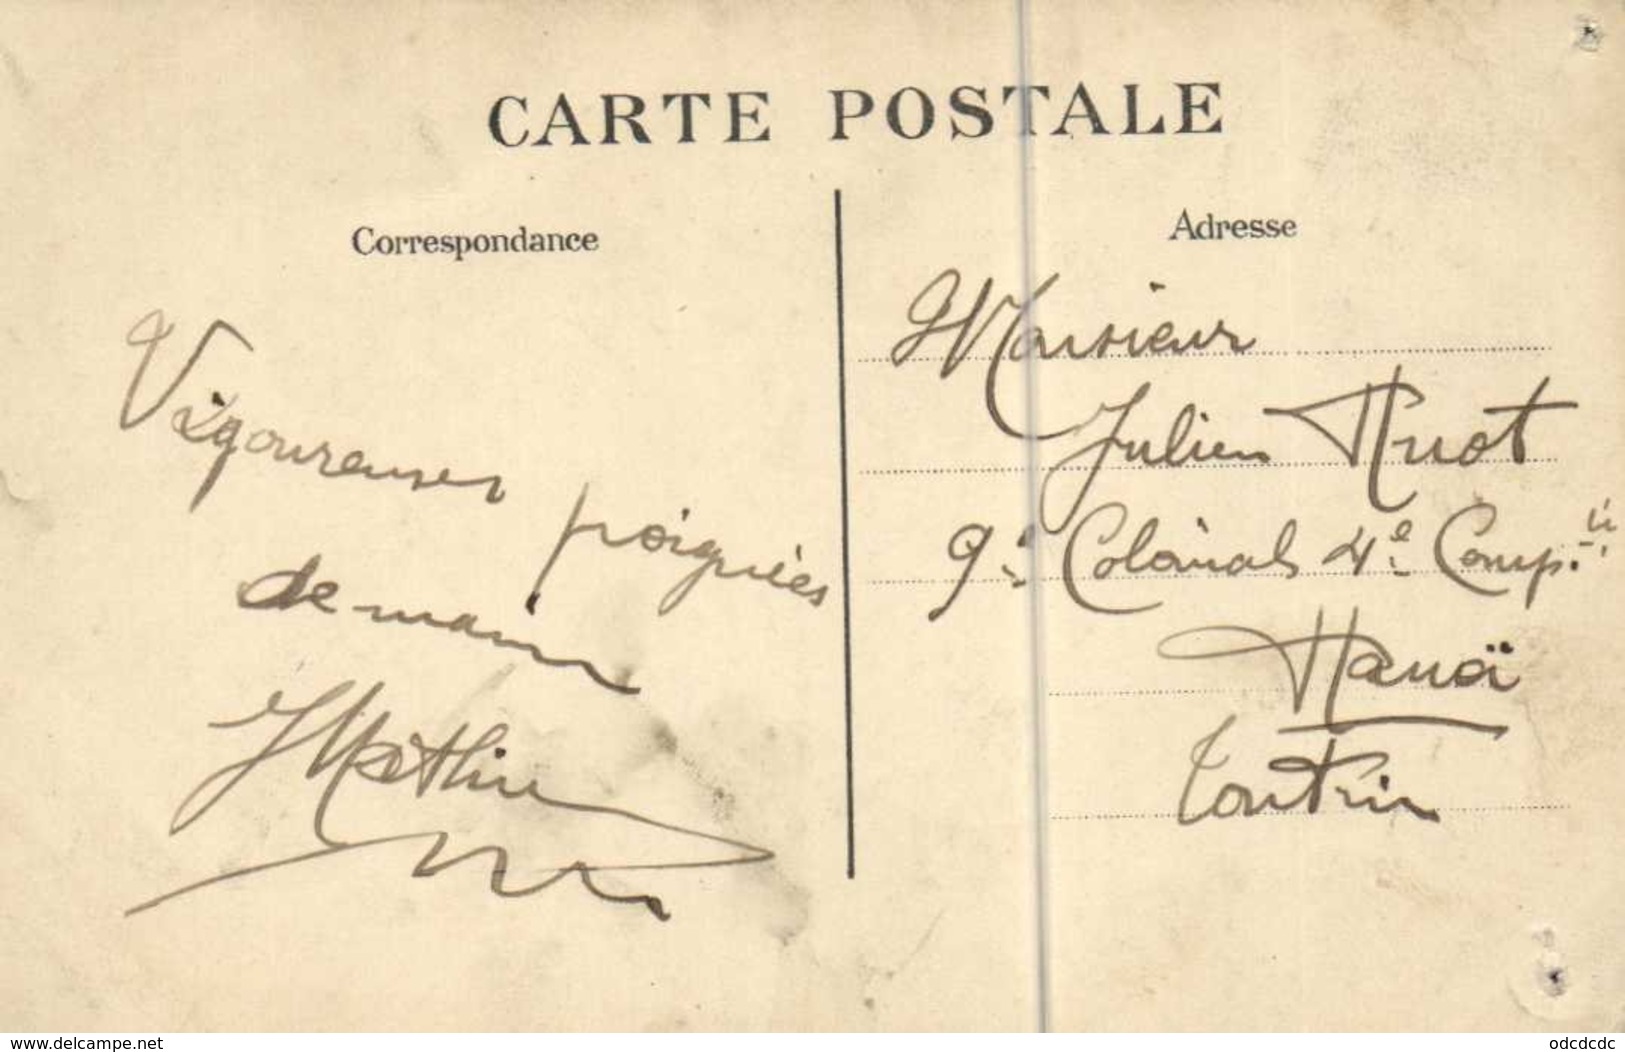 CARTE POSTALE
Correspondance
Vigoureuses poignées
de main
JMathieu
Adresse
Monsieur
Julien Huot
9e Colonial 4e Comp.ie
Hanoï
Tonkin
www.delcampe.net
odcdcdc